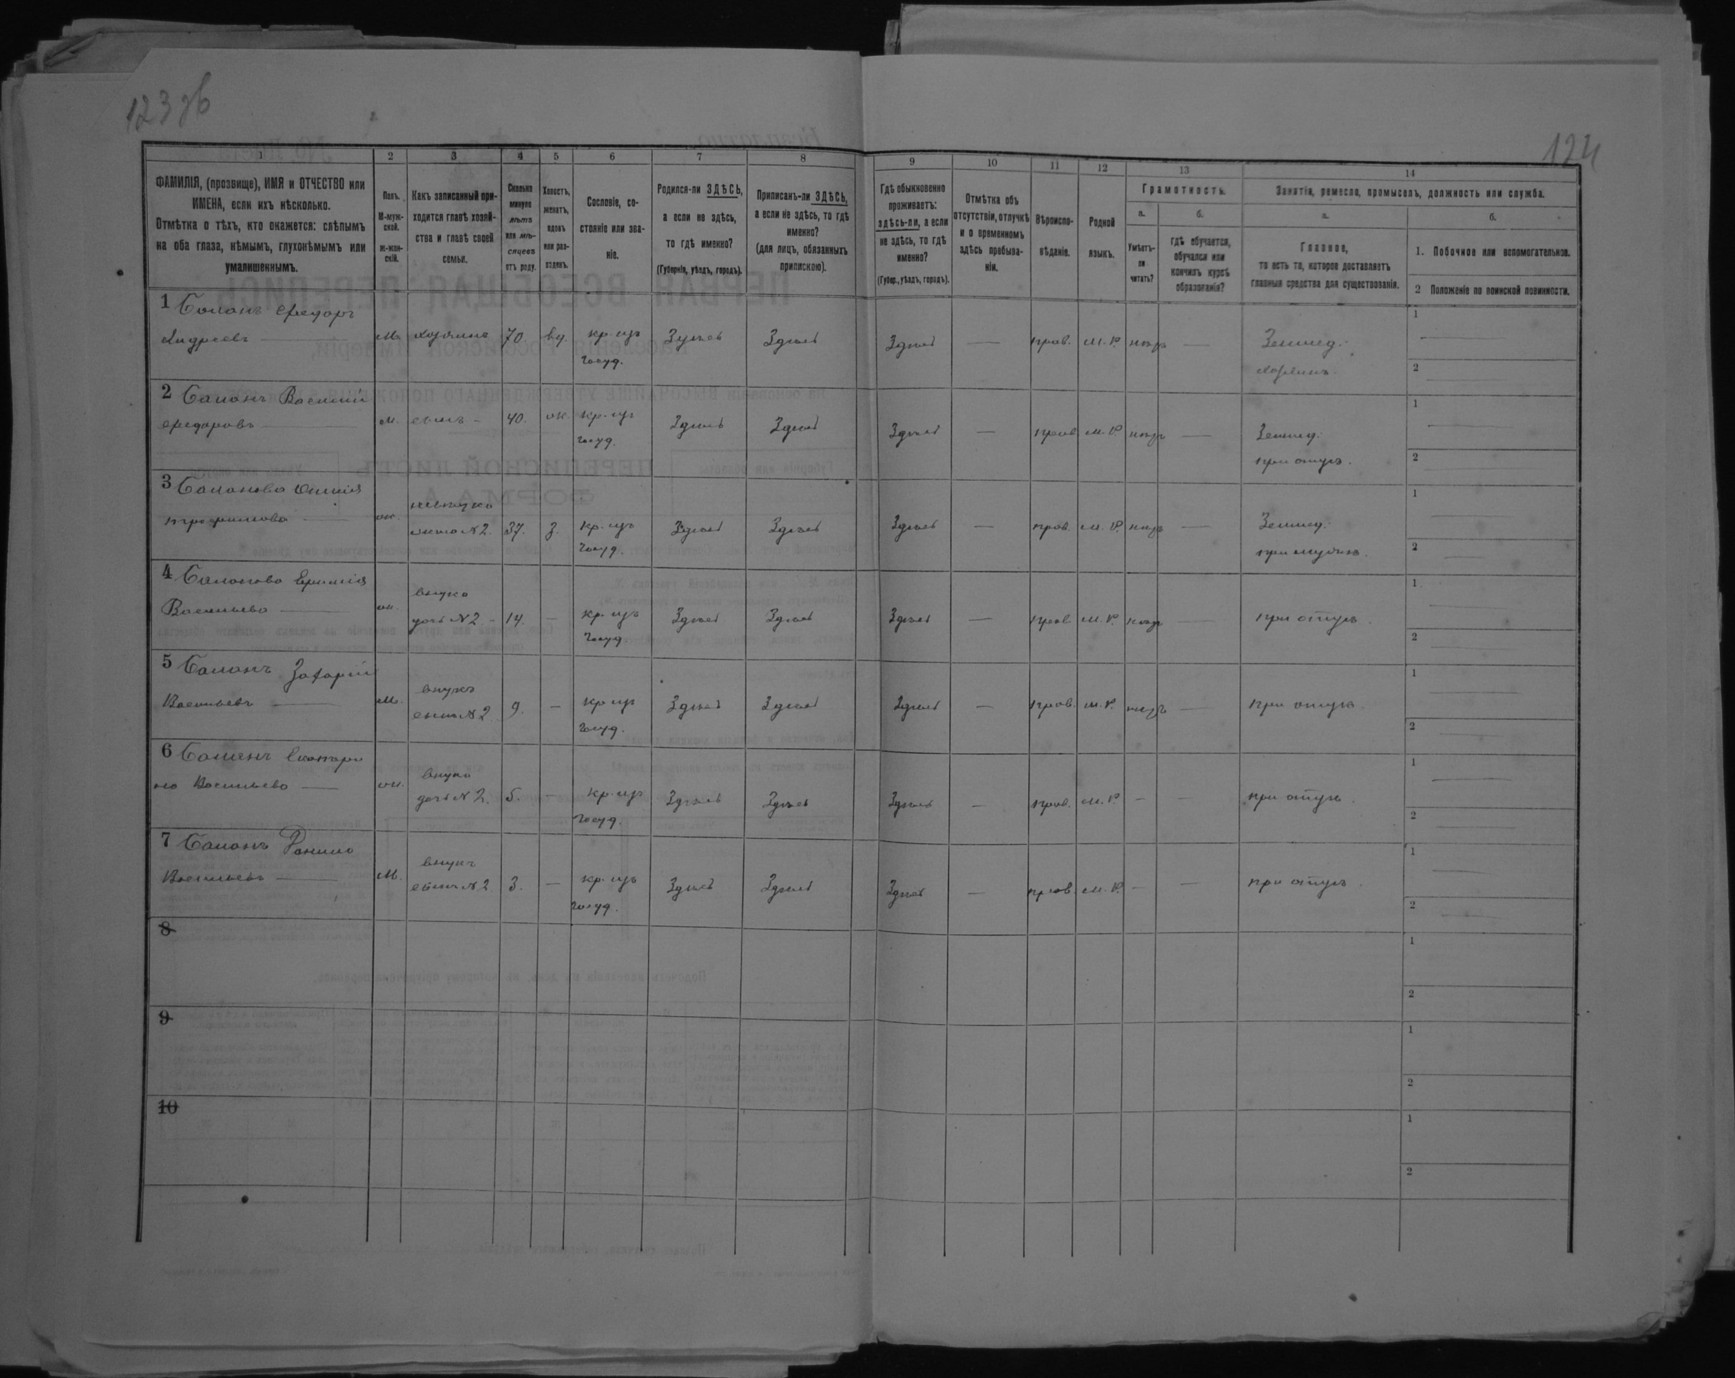 123 об
124
1
2
3
4
5
6
7
8
9
10
11
12
13
14
ФАМИЛІЯ, (прозвище), ИМЯ и ОТЧЕСТВО или
ИМЕНА, если ихъ нѣсколько.
Отмѣтка о тѣхъ, кто окажется: слѣпымъ
на оба глаза, нѣмымъ, глухонѣмымъ или
умалишеннымъ.
Полъ.
М-муж-
ской.
Ж-жен-
скій.
Какъ записанный при-
ходится главѣ хозяй-
ства и главѣ своей
семьи.
Сколько
минуло
лѣтъ
или мѣ-
сяцевъ
отъ роду.
Холостъ,
женатъ,
вдовъ
или раз-
веденъ.
Сословіе, со-
стояніе или зва-
ніе.
Родился-ли ЗДѢСЬ,
а если не здѣсь,
то гдѣ именно?
(Губернія, уѣздъ, городъ).
Приписанъ-ли ЗДѢСЬ,
а если не здѣсь, то гдѣ
именно?
(для лицъ, обязанныхъ
припискою).
Гдѣ обыкновенно
проживаетъ:
здѣсь-ли, а если
не здѣсь, то гдѣ
именно?
(Губер., уѣздъ, городъ).
Отмѣтка объ
отсутствіи, отлучкѣ
и о временномъ
здѣсь пребыва-
ніи.
Вѣроиспо-
вѣданіе.
Родной
языкъ.
Грамотность.
а.
Умѣетъ-
ли
читать?
б.
гдѣ обучается,
обучался или
кончилъ курсъ
образованія?
Занятіе, ремесло, промыселъ, должность или служба.
а.
Главное,
то есть то, которое доставляетъ
главныя средства для существованія.
б.
1. Побочное или вспомогательное.
2 Положеніе по воинской повинности.
1 Саланъ Федоръ
Андреевъ
М. хозяинъ 70. вд. кр. изъ
госуд.
Здѣсь Здѣсь Здѣсь — прав. м. р. нѣтъ — Землед.
хозяинъ
1
2
2 Саланъ Василій
Федоровъ
М. сынъ 40. ж. кр. изъ
госуд.
Здѣсь Здѣсь Здѣсь — прав. м. р. нѣтъ — Землед.
при отцѣ.
1
2
3 Саланова
Трофимова
ж. невѣстка
жена №2. 37. з. кр. изъ
госуд.
Здѣсь Здѣсь Здѣсь — прав. м. р. нѣтъ — Землед.
при мужѣ.
1
2
4 Саланова
Васильева
ж. внука
дочь №2 14. — кр. изъ
госуд.
Здѣсь Здѣсь Здѣсь — прав. м. р. нѣтъ — при отцѣ.
1
2
5 Саланъ Захарій
Васильевъ
М. внукъ
сынъ №2. 9. — кр. изъ
госуд.
Здѣсь Здѣсь Здѣсь — прав. м. р. нѣтъ — при отцѣ.
1
2
6 Саланъ Екатери
на Васильева
ж. внука
дочь №2. 5. — кр. изъ
госуд.
Здѣсь Здѣсь Здѣсь — прав. м. р. — — при отцѣ.
1
2
7 Саланъ Данило
Васильевъ
М. внукъ
сынъ №2 3. — кр. изъ
госуд.
Здѣсь Здѣсь Здѣсь — прав. м. р. — — при отцѣ.
1
2
8
1
2
9
1
2
10
1
2